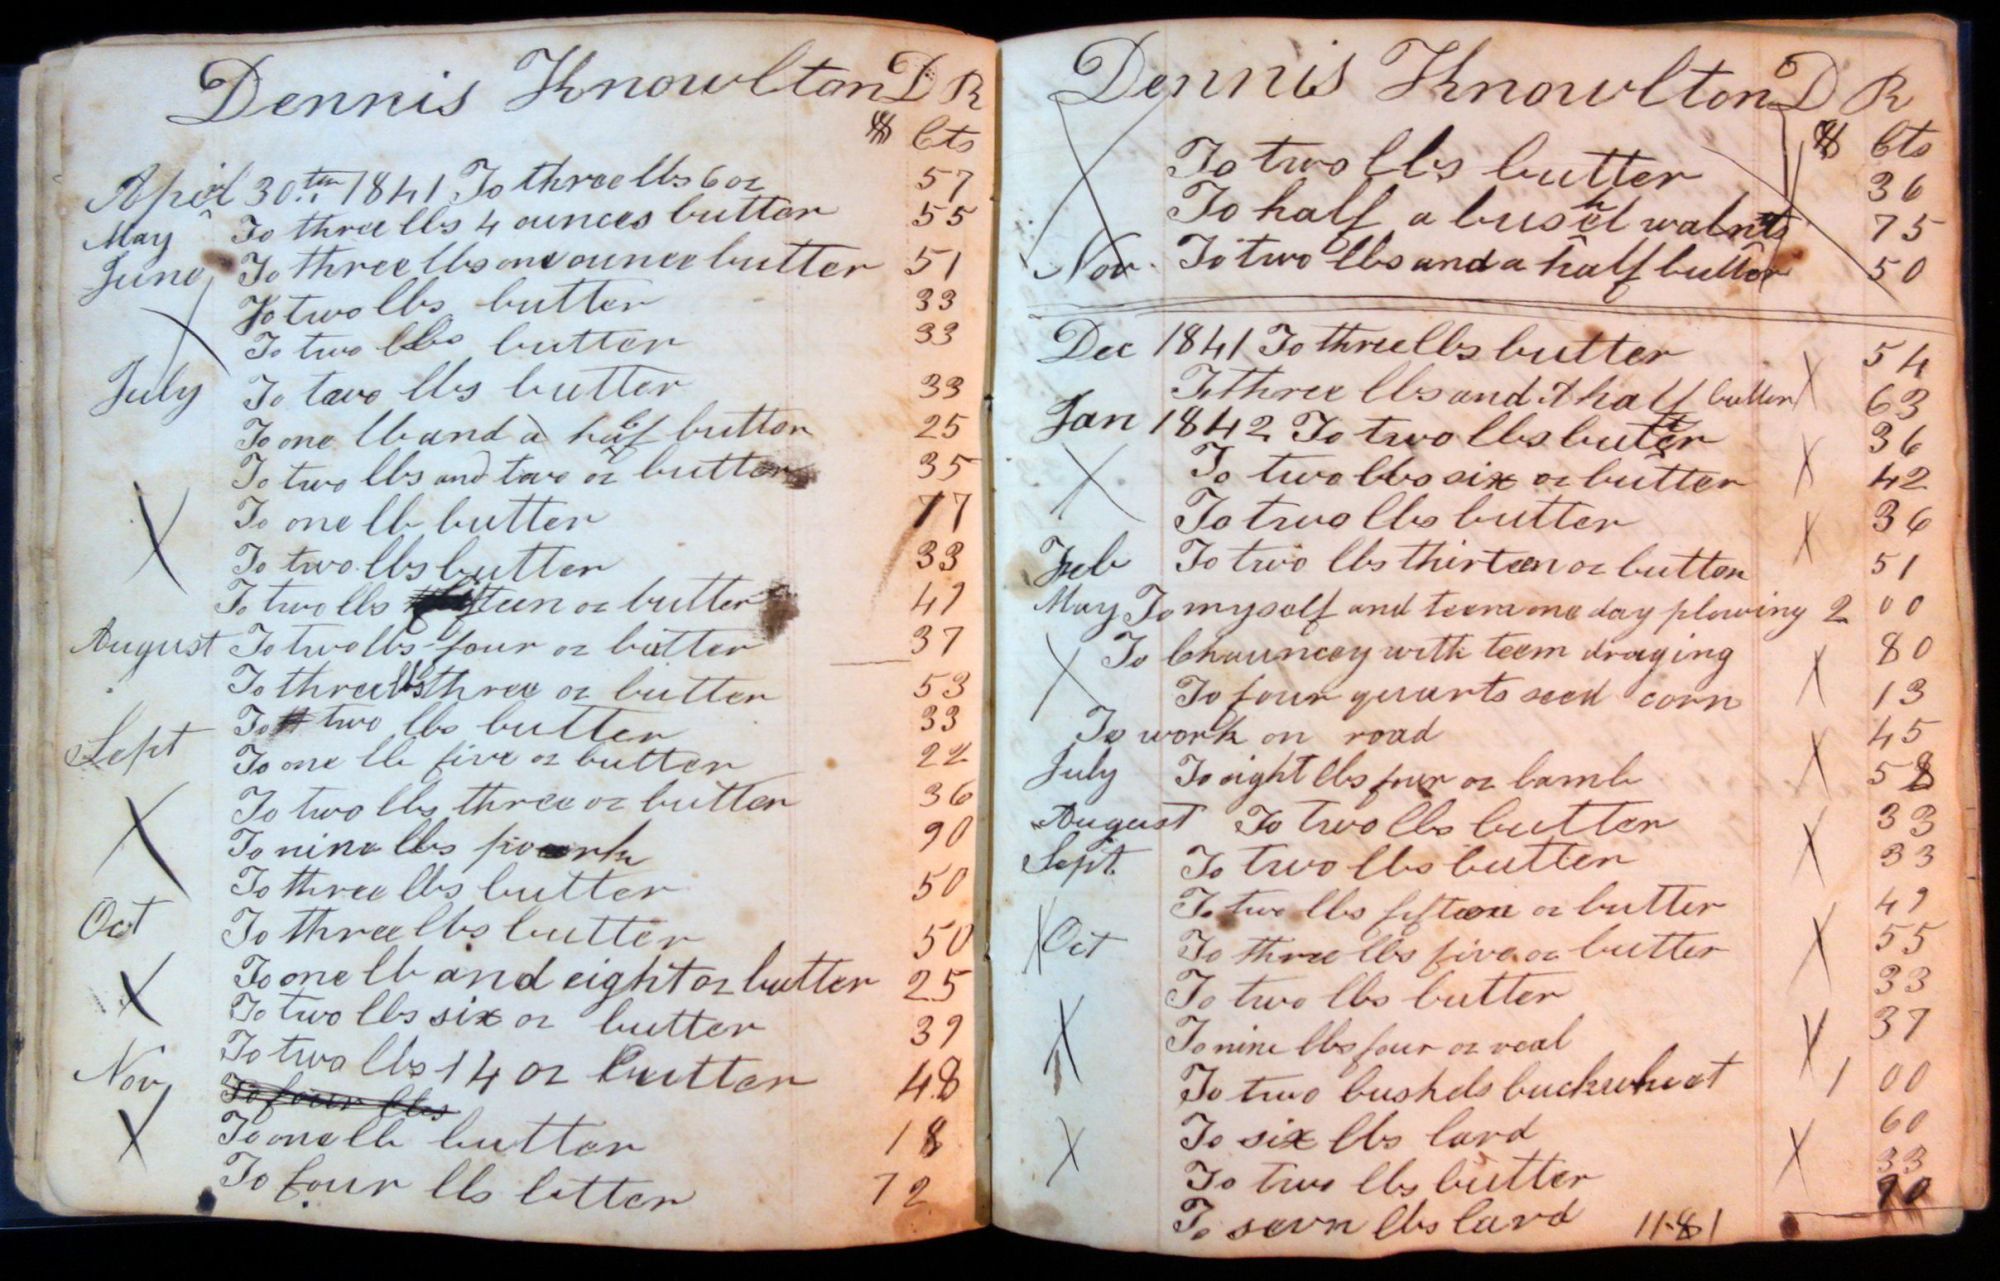 Dennis Knowlton DR
$ Cts
April 30th 1841 To three lbs 6 oz 57
May To three lbs 4 ounces butter 55
June To three lbs one ounce butter 51
To two lbs butter 33
To two lbs butter 33
July To two lbs butter 33
To one lb and a half butter 25
To two lbs and two oz butter 35
To one lb butter 17
To two lbs butter 33
To two lbs fifteen oz butter 49
August To two lbs four oz butter 37
To three lbs three oz butter 53
To two lbs butter 33
Sept To one lb five oz butter 22
To two lbs three oz butter 36
To nine lbs poork 90
To three lbs butter 50
Oct To three lbs butter 50
To one lb and eight oz butter 25
To two lbs six oz butter 39
To two lbs 14 oz butter 48
Nov To four lbs
To one lb butter 18
To four lbs botter 72
Dennis Knowlton D R
$ Cts
To two lbs butter 36
To half a bushel walnuts 75
Nov. To two lbs and a half butter 50
Dec 1841 To three lbs butter 54
To three lbs and A half butter 63
Jan 1842 To two lbs butter 36
To two lbs six oz butter 42
To two lbs butter 36
Feb To two lbs thirteen oz butter 51
May To myself and teem one day plowing 2 00
To Chauncey with teem draging 80
To four quarts seed corn 13
To work on road 45
July To eight lbs four oz lamb 58
August To two lbs butter 33
Sept. To two lbs butter 33
To two lbs fifteen oz butter 49
Oct To three lbs five oz butter 55
To two lbs butter 33
To nine lbs four oz veal 37
To two bushels buckwheat 1 00
To six lbs lard 60
To two lbs butter 33
To sevn lbs lard 11.81 90